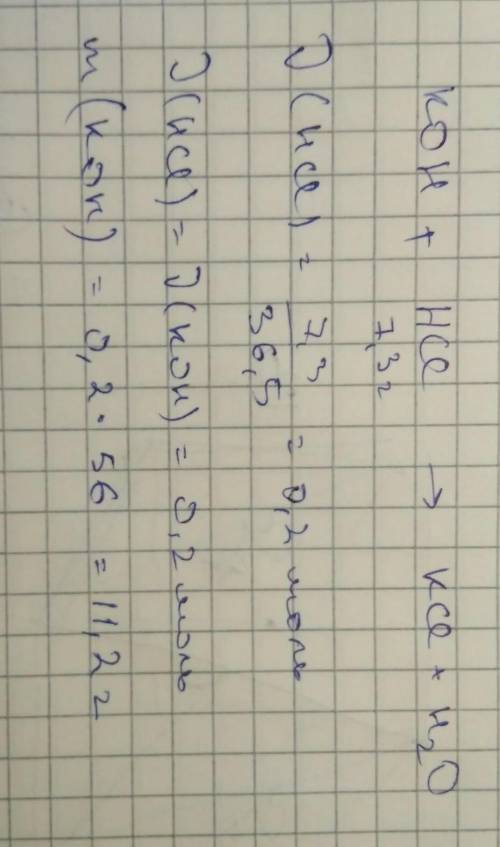 KOH + HCl → KCl + H₂O
7,3 г
ν(HCl) = 7,3/36,5 = 0,2 моль
ν(HCl) = ν(KOH) = 0,2 моль
m(KOH) = 0,2 · 56 = 11,2 г